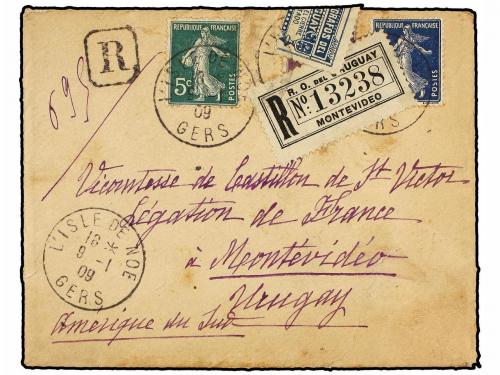 R
695
REPUBLIQUE FRANÇAISE
5c
POSTES
09
GERS
REPUBLIQUE FRANÇAISE
POSTES
R. O. DEL URUGUAY
R No. 13238
MONTEVIDEO
Vicomtesse de Castillon de St Victor
Légation de France
à Montévidéo
Urugay
Amérique du Sud
L'ISLE DE NOE
18 *
9 -1
09
GERS